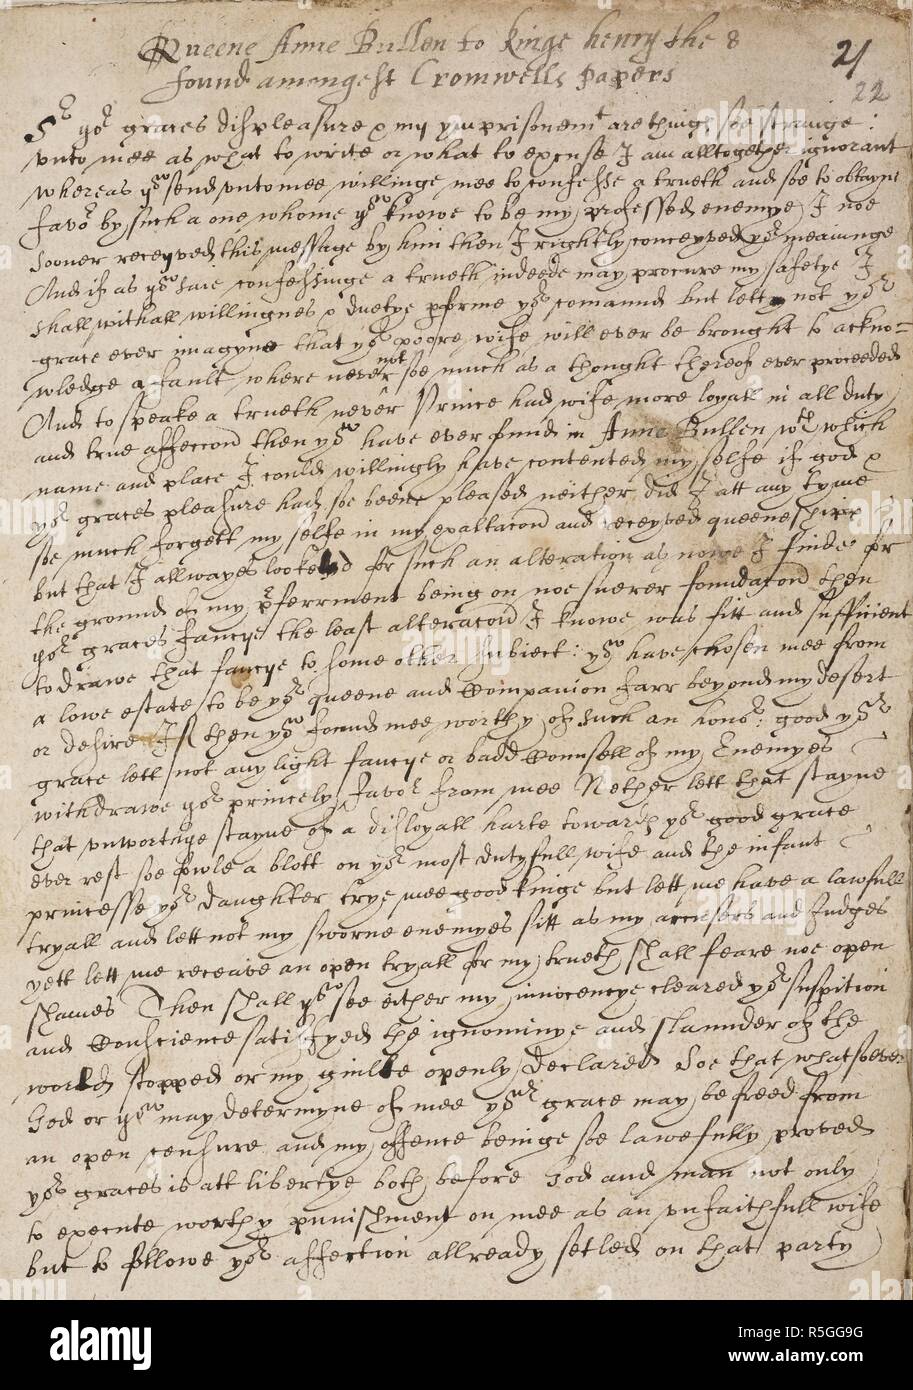 Queene Anne Bullen to kinge henry the 8
found amongest Cromwells papers
21
22
Sr yor graces displeasure & my ymprisonemt are things soe strange
vnto mee as what to write or what to excuse I am alltogether ignorant
whereas you send vnto mee willinge mee to confesse a trueth and soe to obtayne
favor by such a one whome you knowe to be my professed enemye I noe
sooner receyved this message by him then I rightly conceyved yor meaninge
And if as you saie confessinge a trueth indeede may procure my safetye I
shall withall willingnes & duetye pforme yor comannd but lett not yor
grace ever imagyne that yor poore wife will ever be brought to ackno=
wledge a fault where never not soe much as a thought thereof ever proceeded
And to speake a trueth never Prince had wife more loyall in all duty
and true affeccon then you have ever found in Anne Bullen wth which
name and place I could willingly have contented my selfe if god &
yor graces pleasure had soe beene pleased neither did I att any tyme
soe much forgett my selfe in my exaltacon and receyved queeneshipp
but that I allwayes looked for such an alteration as nowe I finde for
the ground of my pferrment being on noe suerer foundacon then
yor graces fancye the least alteracon I knowe was fitt and sufficient
to drawe that fancye to some other subiect: you have chosen mee from
a lowe estate to be yor queene and Companion farr beyond my desert
or desire If then you found mee worthy of such an honor: good yor
grace lett not any light fancye or badd Counsell of my Enemyes
withdrawe yor princely favor from mee Nether lett that stayne
that vnworthye stayne of a disloyall harte towards yor good grace
ever rest soe fowle a blott on yor most dutyfull wife and the infant
princesse yor daughter trye mee good kinge but lett me have a lawfull
tryall and lett not my sworne enemyes sitt as my accusers and Judges
yett lett me receave an open tryall for my trueth shall feare noe open
shames Then shall you see either my innocencye cleared yor suspition
and Conscience satisfyed the ignominye and slaunder of the
world stopped or my guilte openly declared Soe that whatsoever
God or you may determyne of mee yor grace may be freed from
an open censure and my offence beinge soe lawefully proved
yor graces is att libertye both before God and man not only
to execute worthy punishment on mee as an vnfaithfull wife
but to followe yor affection allready setled on that party
alamy
Image ID: R5GG9G
www.alamy.com